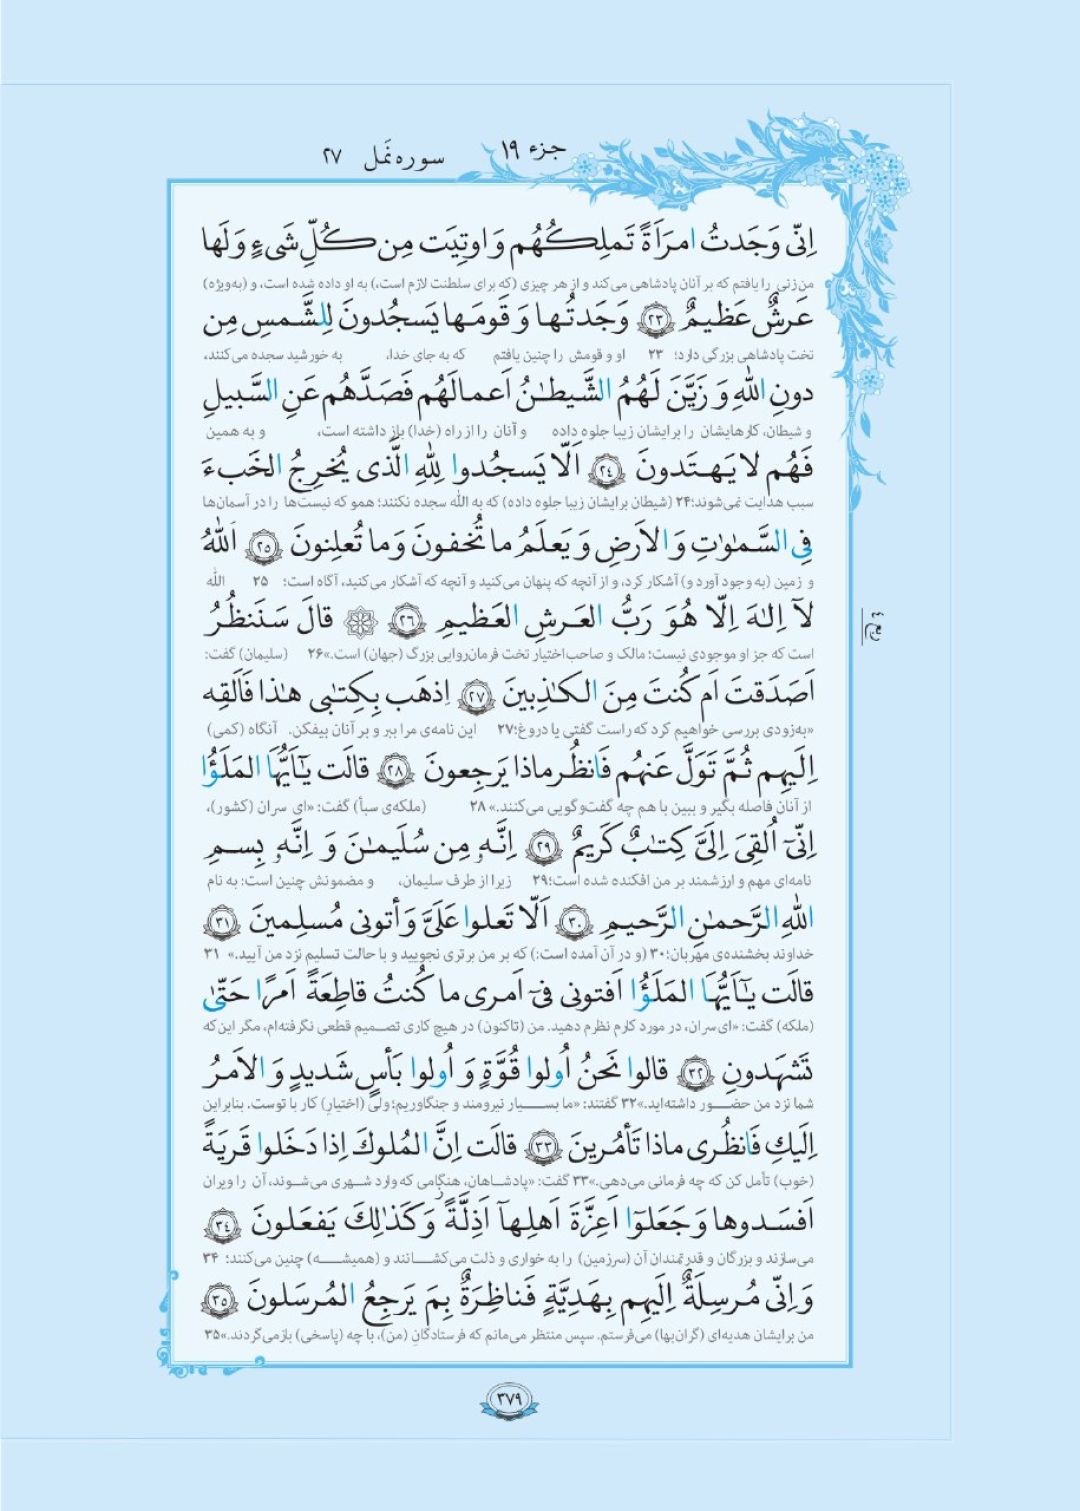 جزء ۱۹
سوره نَمل ۲۷
اِنّی وَجَدتُ امرَأَةً تَملِکُهُم وَ اوتِیَت مِن کُلِّ شَیءٍ وَ لَها
من زنی را یافتم که بر آنان پادشاهی می‌کند و از هر چیزی (که برای سلطنت لازم است،) به او داده شده است، و (به‌ویژه)
عَرشٌ عَظیمٌ ﴿٢٣﴾ وَجَدتُها وَ قَومَها یَسجُدونَ لِلشَّمسِ مِن
تخت پادشاهی بزرگی دارد؛ ۲۳ او و قومش را چنین یافتم که به جای خدا، به خورشید سجده می‌کنند،
دونِ اللهِ وَ زَیَّنَ لَهُمُ الشَّیطـٰنُ اَعمالَهُم فَصَدَّهُم عَنِ السَّبیلِ
و شیطان، کارهایشان را برایشان زیبا جلوه داده و آنان را از راه (خدا) باز داشته است، و به همین
فَهُم لا یَهتَدونَ ﴿٢٤﴾ اَلّا یَسجُدوا لِلّٰهِ الَّذی یُخرِجُ الخَبءَ
سبب هدایت نمی‌شوند؛ ۲۴ (شیطان برایشان زیبا جلوه داده) که به الله سجده نکنند؛ همو که نیست‌ها را در آسمان‌ها
فِی السَّمـٰوٰتِ وَ الاَرضِ وَ یَعلَمُ ما تُخفونَ وَ ما تُعلِنونَ ﴿٢٥﴾ اَللهُ
و زمین (به وجود آورد و) آشکار کرد، و از آنچه که پنهان می‌کنید و آنچه که آشکار می‌کنید، آگاه است؛ ۲۵ الله
لآ اِلـٰهَ اِلّا هُوَ رَبُّ العَرشِ العَظیمِ ﴿٢٦﴾ ۞ قالَ سَنَنظُرُ
است که جز او موجودی نیست؛ مالک و صاحب‌اختیار تخت فرمان‌روایی بزرگ (جهان) است.» ۲۶ (سلیمان) گفت:
ربع ٤
اَصَدَقتَ اَم کُنتَ مِنَ الکـٰذِبینَ ﴿٢٧﴾ اِذهَب بِکِتـٰبی هـٰذا فَاَلقِه
«به‌زودی بررسی خواهیم کرد که راست گفتی یا دروغ؛ ۲۷ این نامه‌ی مرا ببر و بر آنان بیفکن. آنگاه (کمی)
اِلَیهِم ثُمَّ تَوَلَّ عَنهُم فَانظُر ماذا یَرجِعونَ ﴿٢٨﴾ قالَت یـٰٓاَیُّهَا المَلَؤُا
از آنان فاصله بگیر و ببین با هم چه گفت‌وگویی می‌کنند.» ۲۸ (ملکه‌ی سبأ) گفت: «ای سران (کشور)،
اِنّیٓ اُلقِیَ اِلَیَّ کِتـٰبٌ کَریمٌ ﴿٢٩﴾ اِنَّهٗ مِن سُلَیمـٰنَ وَ اِنَّهٗ بِسمِ
نامه‌ای مهم و ارزشمند بر من افکنده شده است؛ ۲۹ زیرا از طرف سلیمان، و مضمونش چنین است: به نام
اللهِ الرَّحمـٰنِ الرَّحیمِ ﴿٣٠﴾ اَلّا تَعلوا عَلَیَّ وَ أتونی مُسلِمینَ ﴿٣١﴾
خداوند بخشنده‌ی مهربان؛ ۳۰ (و در آن آمده است:) که بر من برتری نجویید و با حالت تسلیم نزد من آیید.» ۳۱
قالَت یـٰٓاَیُّهَا المَلَؤُا اَفتونی فیٓ اَمری ما کُنتُ قاطِعَةً اَمرًا حَتّیٰ
(ملکه) گفت: «ای سران، در مورد کارم نظرم دهید. من (تاکنون) در هیچ کاری تصمیم قطعی نگرفته‌ام، مگر این‌که
تَشهَدونِ ﴿٣٢﴾ قالوا نَحنُ اُولوا قُوَّةٍ وَ اُولوا بَأسٍ شَدیدٍ وَ الاَمرُ
شما نزد من حضور داشته‌اید.» ۳۲ گفتند: «ما بسیار نیرومند و جنگاوریم؛ ولی (اختیار) کار با توست. بنابراین
اِلَیکِ فَانظُری ماذا تَأمُرینَ ﴿٣٣﴾ قالَت اِنَّ المُلوکَ اِذا دَخَلوا قَریَةً
(خوب) تأمل کن که چه فرمانی می‌دهی.» ۳۳ گفت: «پادشاهان، هنگامی که وارد شهری می‌شوند، آن را ویران
اَفسَدوها وَ جَعَلوٓا اَعِزَّةَ اَهلِهآ اَذِلَّةً وَ کَذٰلِکَ یَفعَلونَ ﴿٣٤﴾
می‌سازند و بزرگان و قدرتمندان آن (سرزمین) را به خواری و ذلت می‌کشانند و (همیشه) چنین می‌کنند؛ ۳۴
وَ اِنّی مُرسِلَةٌ اِلَیهِم بِهَدِیَّةٍ فَناظِرَةٌ بِمَ یَرجِعُ المُرسَلونَ ﴿٣٥﴾
من برایشان هدیه‌ای (گران‌بها) می‌فرستم. سپس منتظر می‌مانم که فرستادگانِ (من)، با چه (پاسخی) بازمی‌گردند.» ۳۵
۳۷۹